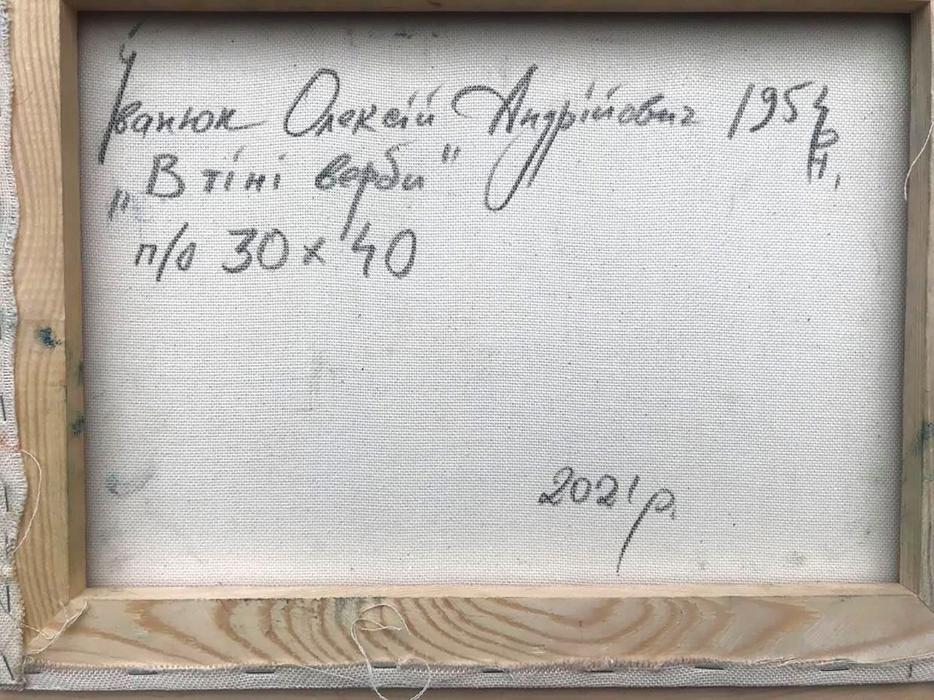 Іванюк Олексій Андрійович 1954 р.н.
„В тіні верби"
п/о 30 х 40
2021 р.